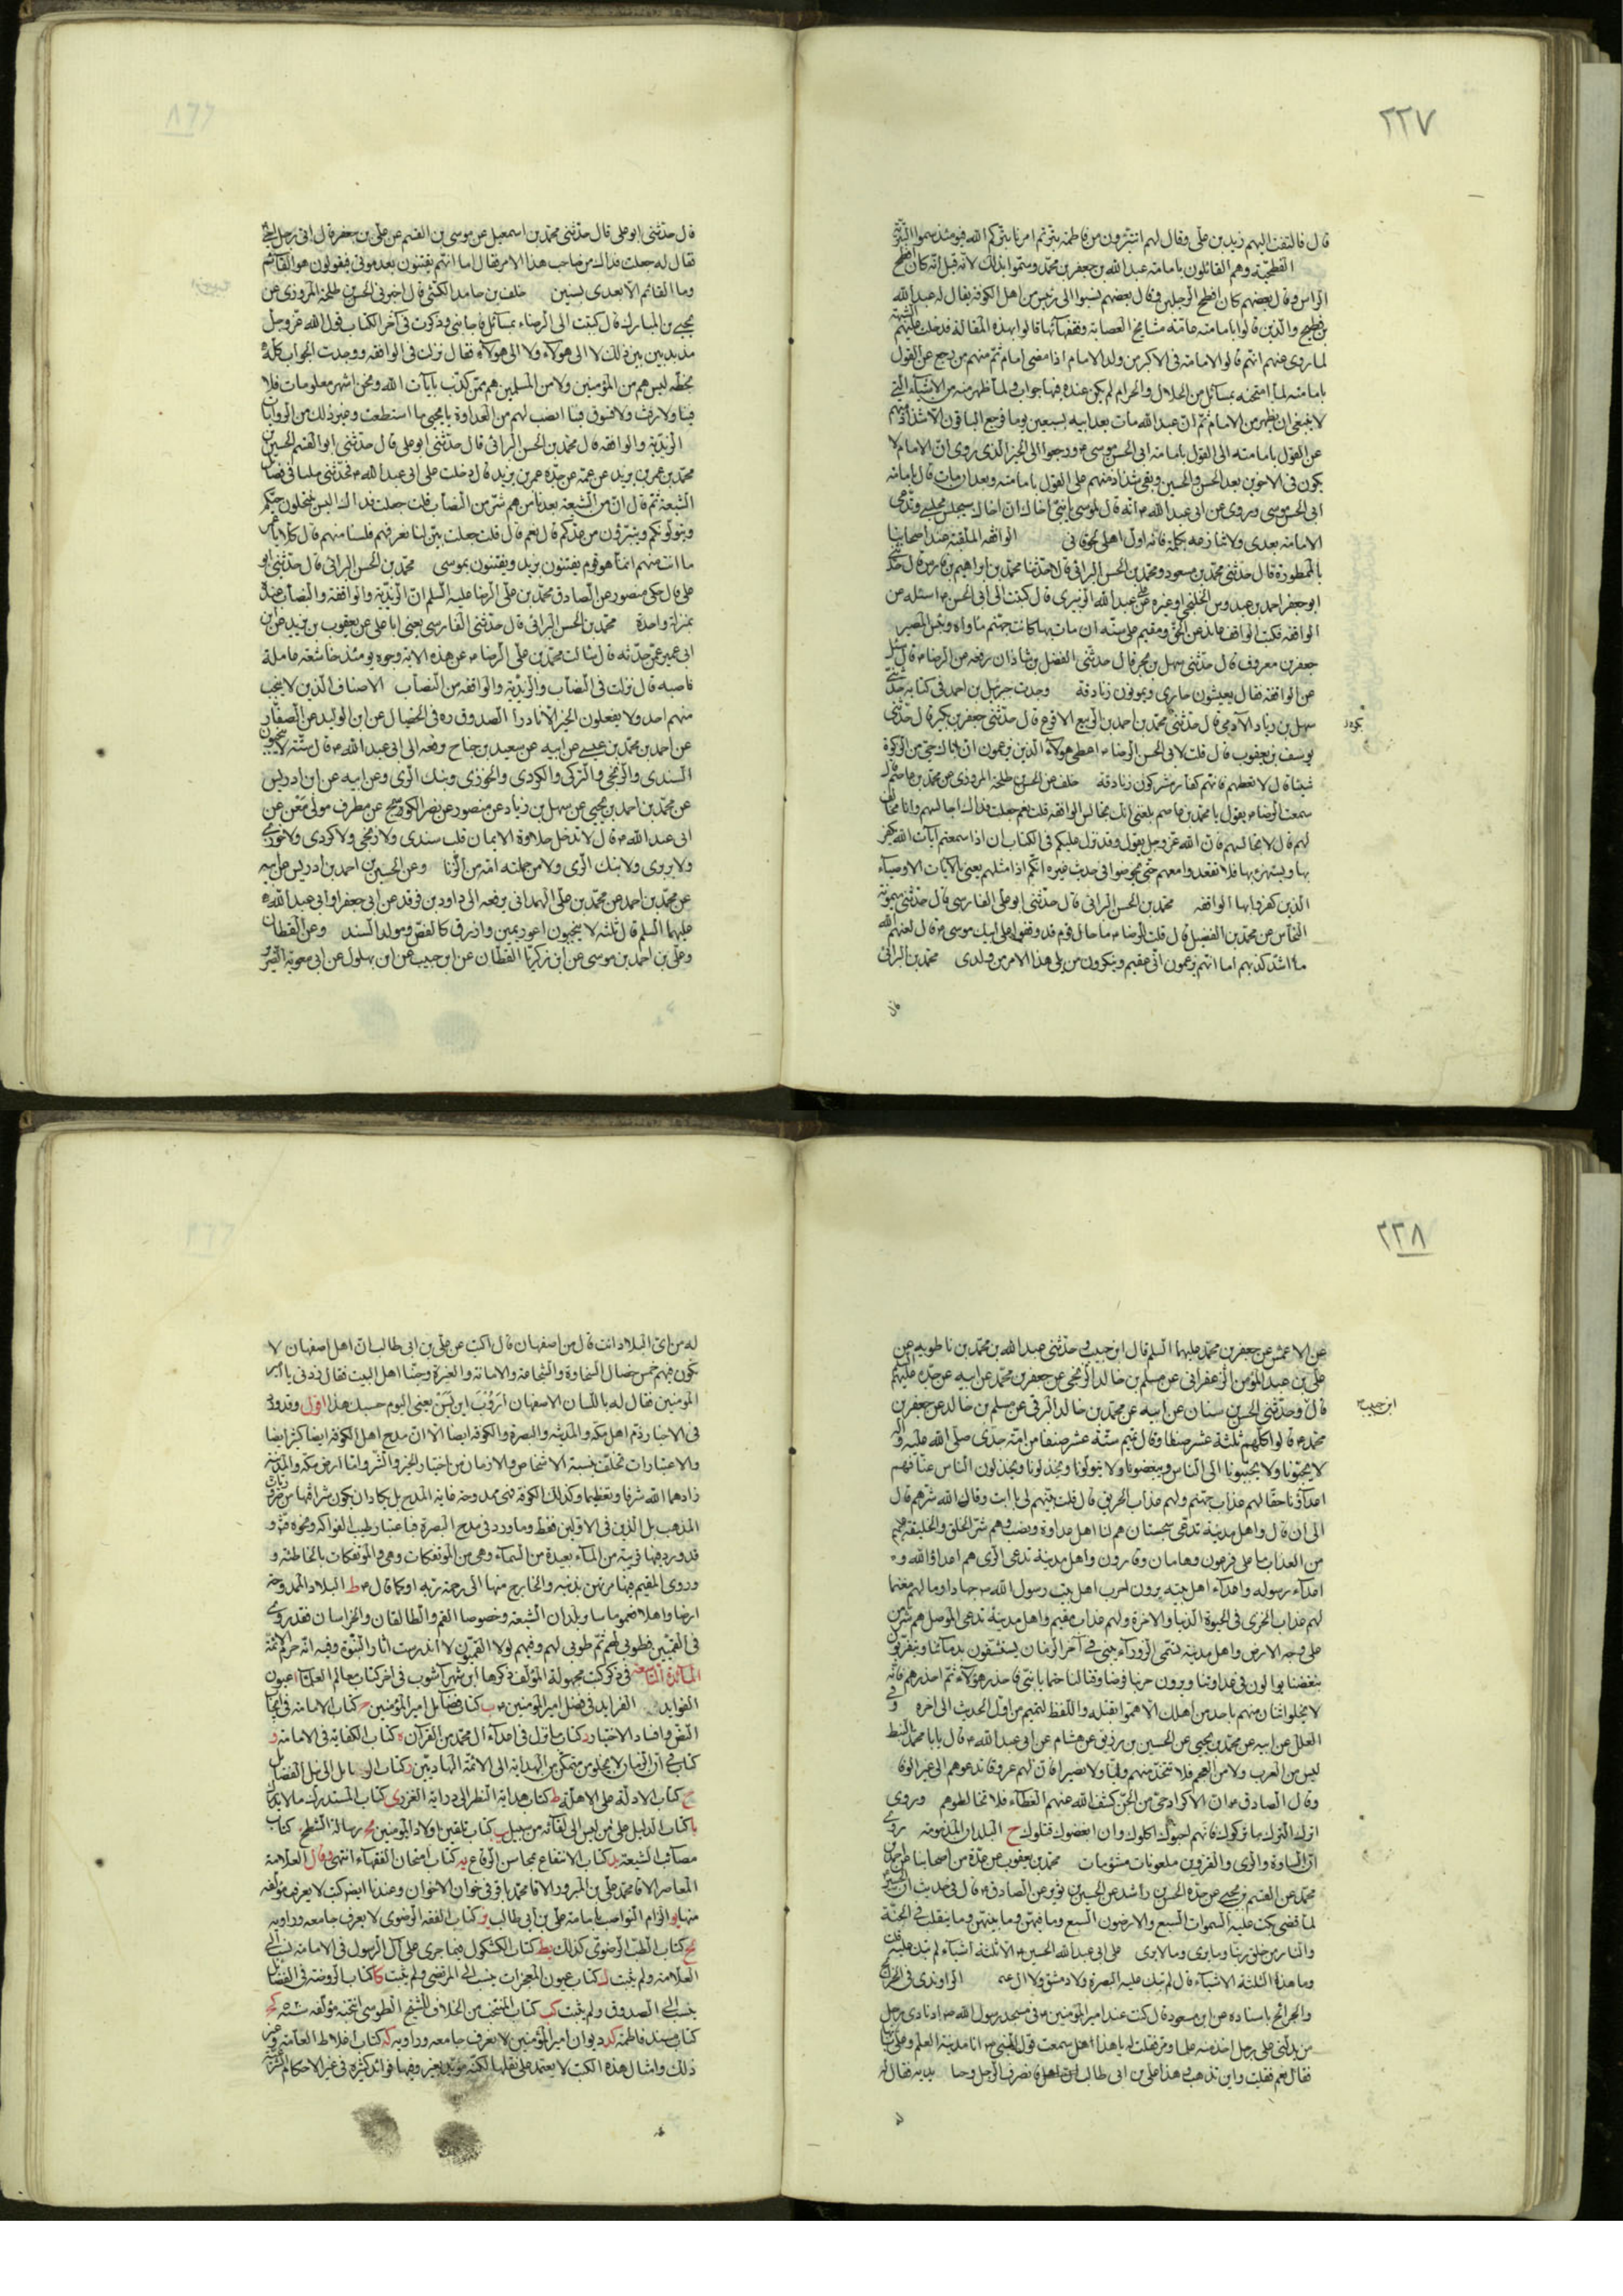 ٢٢٧
قال فالتفت اليهم زيد بن علي وقال لهم اتتبرؤن من فاطمة بترتم امرنا بتركم الله فيومئذ سموا البترية
الفطحية وهم القائلون بامامة عبد الله بن جعفر بن محمد وسموا بذلك لانه قيل انه كان افطح
الراس وقال بعضهم كان افطح الرجلين وقال بعضهم نسبوا الى رئيس من اهل الكوفة يقال له عبد الله
بن فطيح والذين قالوا بامامته عامة مشايخ العصابة وفقهائها قالوا بهذه المقالة فدخلت عليهم الشبهة
لما روى عنهم انهم قالوا الامامة في الاكبر من ولد الامام اذا مضى امام ثم منهم من رجع عن القول
بامامته لما امتحنه بمسائل من الحلال والحرام لم يكن عنده فيها جواب ولما ظهر منه من الاشياء التي
لا ينبغي ان يظهر من الامام ثم ان عبد الله مات بعد ابيه بسبعين يوما فرجع الباقون الا شذاذ منهم
عن القول بامامته الى القول بامامة ابي الحسن موسى ورجعوا الى الخبر الذي روى ان الامامة لا
يكون في الاخوين بعد الحسن والحسين وبقي شذاذ منهم على القول بامامته وبعد ان مات قال بامامة
ابي الحسن موسى وروى عن ابي عبد الله انه قال لموسى يا بني اخاك ان اخاك سيجلس مجلسي ويدعى
الامامة بعدي ولا تنازعه بكلمة فانه اول اهلي لحوقا بي الواقفة الملقبة عند اصحابنا
بالممطورة قال حدثني محمد بن مسعود ومحمد بن الحسن البراثي قالا حدثنا محمد بن ابراهيم بن فارس قال حدثني
ابو جعفر احمد بن عبدوس الخلنجي او غيره عن علي بن عبد الله الزبيري قال كتبت الى ابي الحسن اسئله عن
الواقفة فكتب الواقف عاند عن الحق ومقيم على سيئة ان مات بها كانت جهنم ماواه وبئس المصير
جعفر بن معروف قال حدثني سهل بن بحر قال حدثني الفضل بن شاذان رفعه عن الرضا قال سئل
عن الواقفة فقال يعيشون حيارى ويموتون زنادقة وجدت جبرئيل بن احمد في كتابه حدثني
سهل بن زياد الآدمي قال حدثني محمد بن احمد بن الربيع الاقرع قال حدثني جعفر بن بكير قال حدثني
يوسف بن يعقوب قال قلت لابي الحسن الرضا اعطي هولاء الذين يزعمون ان اباك حي من الزكوة
شيئا قال لا تعطهم فانهم كفار مشركون زنادقة خلف عن الحسن بن طلحة المروزي عن محمد بن عاصم قال
سمعت الرضا يقول يا محمد بن عاصم بلغني انك تجالس الواقفة قلت نعم جعلت فداك اجالسهم وانا مخالف
لهم قال لا تجالسهم فان الله عز وجل يقول وقد نزل عليكم في الكتاب ان اذا سمعتم آيات الله يكفر
بها ويستهزء بها فلا تقعدوا معهم حتى يخوضوا في حديث غيره انكم اذا مثلهم يعني بالآيات الاوصياء
الذين كفروا بها الواقفة محمد بن الحسن البراثي قال حدثني ابو علي الفارسي قال حدثني ميمون
النخاس عن محمد بن الفضيل قال قلت للرضا ما حال قوم قد وقفوا على ابيك موسى قال لعنهم الله
ما اشد كذبهم اما انهم يزعمون اني عقيم وينكرون من يلي هذا الامر من ولدي محمد بن البراثي
قال
قال حدثني ابو علي قال حدثني محمد بن اسمعيل عن موسى بن القسم عن علي بن جعفر قال اتى رجل اخي
فقال له جعلت فداك من صاحب هذا الامر فقال اما انهم يفتنون بعد موتي فيقولون هو القائم
وما القائم الا بعدي بسنين خلف بن حامد الكشي قال اخبرني الحسن بن طلحة المروزي عن
يحيى بن المبارك قال كتبت الى الرضا بمسائل فاجابني وذكرت في آخر الكتاب قول الله عز وجل
مذبذبين بين ذلك لا الى هولاء ولا الى هولاء فقال نزلت في الواقفة ووجدت الجواب كله
بخطه ليس هم من المؤمنين ولا من المسلمين هم ممن كذب بآيات الله ونحن اشهر معلومات فلا
فينا ولا رفث ولا فسوق فينا انصب لهم من العداوة يا يحيى ما استطعت وغير ذلك من الروايات
الزيدية والواقفة قال محمد بن الحسن البراثي قال حدثني ابو علي قال حدثني ابو القسم الحسين
محمد بن عمر بن يزيد عن عمه عن جده عمر بن يزيد قال دخلت على ابي عبد الله فحدثني مليا في فضائل
الشيعة ثم قال ان من الشيعة بعدنا من هم شر من النصاب قلت جعلت فداك اليس ينتحلون حبكم
ويتولونكم ويتبرؤن من عدوكم قال نعم قال قلت جعلت بين لنا نعرفهم فلسنا منهم قال كلا يا عمر
ما انت منهم انما هو قوم يفتنون بزيد ويفتنون بموسى محمد بن الحسن البراثي قال حدثني ابو
علي قال حكى منصور عن الصادق محمد بن علي الرضا عليه السلم ان الزيدية والواقفة والنصاب عنده
بمنزلة واحدة محمد بن الحسن البراثي قال حدثني الفارسي يعني ابا علي عن يعقوب بن يزيد عن ابن
ابي عمير عمن حدثه قال سالت محمد بن علي الرضا عن هذه الاية وجوه يومئذ خاشعة عاملة
ناصبه قال نزلت في النصاب والزيدية والواقفة من النصاب الاصناف الذين لا ينجب
منهم احد ولا يفعلون الخير الا نادرا الصدوق ره في الخصال عن ابن الوليد عن الصفار
عن احمد بن محمد بن عيسى عن ابيه عن سعيد بن جناح رفعه الى ابي عبد الله قال ستة لا ينجبون
السندي والزنجي والتركي والكردي والخوزي وبنك الري وعن ابيه عن ابن ادريس
عن محمد بن احمد بن يحيى عن سهل بن زياد عن منصور عن نصر الكوسج عن مطرف مولى معن عن
ابي عبد الله قال لا تدخل حلاوة الايمان قلب سندي ولا زنجي ولا كردي ولا خوزي
ولا بربري ولا بنك الري ولا من حملته امه من الزنا وعن الحسين بن احمد بن ادريس عن ابيه
عن محمد بن احمد عن محمد بن علي الهمداني يرفعه الى داود بن فرقد عن ابي جعفر او ابي عبد الله
عليهما السلم قال ثلثة لا ينجبون اعور يمين وازرق كالفص ومولد السند وعن القطان
وعلي بن احمد بن موسى عن ابن زكريا القطان عن ابن حبيب عن ابن بهلول عن ابي معوية الضرير
٢٢٨
عن الاعمش عن جعفر بن محمد عليهما السلم قال ابن حبيب وحدثني عبد الله بن محمد بن ناطويه عن
علي بن عبد المؤمن الزعفراني عن مسلم بن خالد الزنجي عن جعفر بن محمد عن ابيه عن جده عليهم
قال وحدثني الحسن بن سنان عن ابيه عن محمد بن خالد البرقي عن مسلم بن خالد عن جعفر بن
محمد قالوا كلهم ثلثة عشر صنفا وقال تميم ستة عشر صنفا من امة جدي صلى الله عليه وآله
لا يحبونا ولا يحببونا الى الناس ويبغضونا ولا يتولونا ويخذلونا ويخذلون الناس عنا فهم
اعداؤنا حقا لهم عذاب جهنم ولهم عذاب الحريق قال قلت بينهم لي يا ابت وقاك الله شرهم قال
الى ان قال واهل مدينة تدعى سجستان هم لنا اهل عداوة ونصب وهم شر الخلق والخليقة عليهم
من العذاب ما على فرعون وهامان وقارون واهل مدينة تدعى الري هم اعداء الله و
اعداء رسوله واعداء اهل بيته يرون حرب اهل بيت رسول الله جهادا ومالهم مغنما
لهم عذاب الخزي في الحيوة الدنيا والاخرة ولهم عذاب مقيم واهل مدينة تدعى الموصل هم شر من
على وجه الارض واهل مدينة تسمى الزوراء تبنى في آخر الزمان يستشفون بدمائنا ويتقربون
ببغضنا يوالون في عداوتنا ويرون حربنا فرضا وقتالنا حتما يا بني فاحذر هؤلاء ثم احذرهم فانه
لا يخلو اثنان منهم باحد من اهلك الا هموا بقتله واللفظ لتميم من اول الحديث الى اخره وفي
العلل عن ابيه عن محمد بن يحيى عن الحسين بن زريق عن هشام عن ابي عبد الله قال يا با محمد النبط
ليس من العرب ولا من العجم فلا تتخذ منهم وليا ولا نصيرا فان لهم عروقا تدعوهم الى غير الوفا
وقال الصادق ان الاكراد حي من الجن كشف الله عنهم الغطاء فلا تخالطوهم وروى
اترك الترك ما تركوك فانهم ان احبوك اكلوك وان ابغضوك قتلوك ح البلدان المذمومة روى
ان الساوة والري والقزوين ملعونات مشؤمات محمد بن يعقوب عن عدة من اصحابنا عن احمد بن
محمد عن القسم بن يحيى عن جده الحسن بن راشد عن الحسين بن ثوير عن الصادق قال في حديث ان الحسين
لما قضى بكت عليه السموات السبع والارضون السبع وما فيهن وما بينهن وما ينقلب في الجنة
والنار من خلق ربنا وما يرى وما لا يرى على ابي عبد الله الحسين الا ثلثة اشياء لم تبك عليه قلت
وما هذه الثلثة الاشياء قال لم تبك عليه البصرة ولا دمشق ولا ال الراوندي في الخرايج
والجرايح باسناده عن ابن مسعود قال كنت عند امير المؤمنين في مسجد رسول الله اذ نادى رجل
من يدلني على رجل اخذ منه علما ومر فقلت له يا هذا هل سمعت قول النبي انا مدينة العلم وعلي بابها
فقال نعم فقلت واين تذهب وهذا علي بن ابي طالب فانصرف الرجل وجثا بين يديه فقال له
ابن حبيب
له من اي البلاد انت قال من اصفهان قال اكتب عن علي بن ابي طالب ان اهل اصفهان لا
تكون فيهم خمس خصال السخاوة والشجاعة والامانة والغيرة وحبنا اهل البيت فقال زدني يا امير
المؤمنين فقال له باللسان الاصفهان اروت اين وس يعني اليوم حسبك هذا اقول وقد ورد
في الاخبار ذم اهل مكة والمدينة والبصرة والكوفة ايضا الا ان مدح اهل الكوفة ايضا كثير ايضا
والاعتبارات تختلف بنسبة الاشخاص والازمان من اختيار الخير والشر واما ارض مكة والمدينة
زادهما الله شرفا وتعظيما وكذلك الكوفة فهي ممدوحة غاية المدح بل يكاد ان يكون شرافتها من ضروريات
المذهب بل الدين في الاولين فقط وما ورد في مدح البصرة فباعتبار طيب الفواكه ونحوه فهو
قد ورد فيها قريبة من الماء بعيدة من السماء وهي من المؤتفكات وهي والمؤتفكات بالخاطئة و
وروى المقيم فيها مرتهن بذنبه والخارج منها الى رحمة ربه او كما قال ط البلاد الممدوحة
ارضا واهلا عموما سا وبلدان الشيعة وخصوصا القم والطالقان والخراسان فقد روى
في القميين فطوبى لهم ثم طوبى لهم وفيهم لولا القميون لاندرست اثار النبوة وفيه انه حرم الائمة
المائدة التاسعة في ذكر كتب مجهولة المؤلف ذكرها ابن شهرآشوب في اخر كتاب معالم العلما ا عيون
الفوايد الفرايد في فضل امير المؤمنين ب كتاب فضايل امير المؤمنين ج كتاب الامامة في ايجاب
النص وافساد الاختيار د كتاب ما نزل في اعداء ال محمد من القرآن ه كتاب الكفاية في الامامة و
كتاب في ان الزمان لا يخلو من متمكن من الهداية الى الائمة الهاديين ز كتاب الوسايل الى نيل الفضايل
ح كتاب الادلة على الاهلة ط كتاب هداية النظر الى دراية الغرر ى كتاب المستدرك
يا كتاب الدليل على من ليس الى لقائه من سبيل يب كتاب تلقين اولاد المؤمنين يج رسالة الشطح كتاب
مصائب الشيعة يد كتاب الانتفاع بمحاسن الوقاع يه كتاب امتحان الفقهاء انتهى وقال العلامة
المعاصر الاقا محمد علي بن المبرور الاقا محمد باقر في خوان الاخوان وعندنا ايضا كتب لا يعرف مؤلفه
منها يو الزام النواصب بامامة علي بن ابي طالب يز كتاب الفقه الرضوي لا يعرف جامعه وراويه
يح كتاب الطب الرضوي كذلك يط كتاب الكشكول فيما جرى على آل الرسول في الامامة ينسب الى
العلامة ولم يثبت ك كتاب عيون المعجزات ينسب الى المرتضى ولم يثبت كا كتاب الروضة في الفضايل
ينسب الى الصدوق ولم يثبت كب كتاب المنتخب من الخلاف للشيخ الطوسي انتخبه مؤلفه سنة كج
كتاب مسند فاطمة كد ديوان امير المؤمنين لا يعرف جامعه وراويه كه كتاب اغلاط العامة وغير
ذلك وامثال هذه الكتب لا يعتمد على نقلها لكنه مؤيد وفيها فوائد كثيرة في غير الاحكام الشرعية